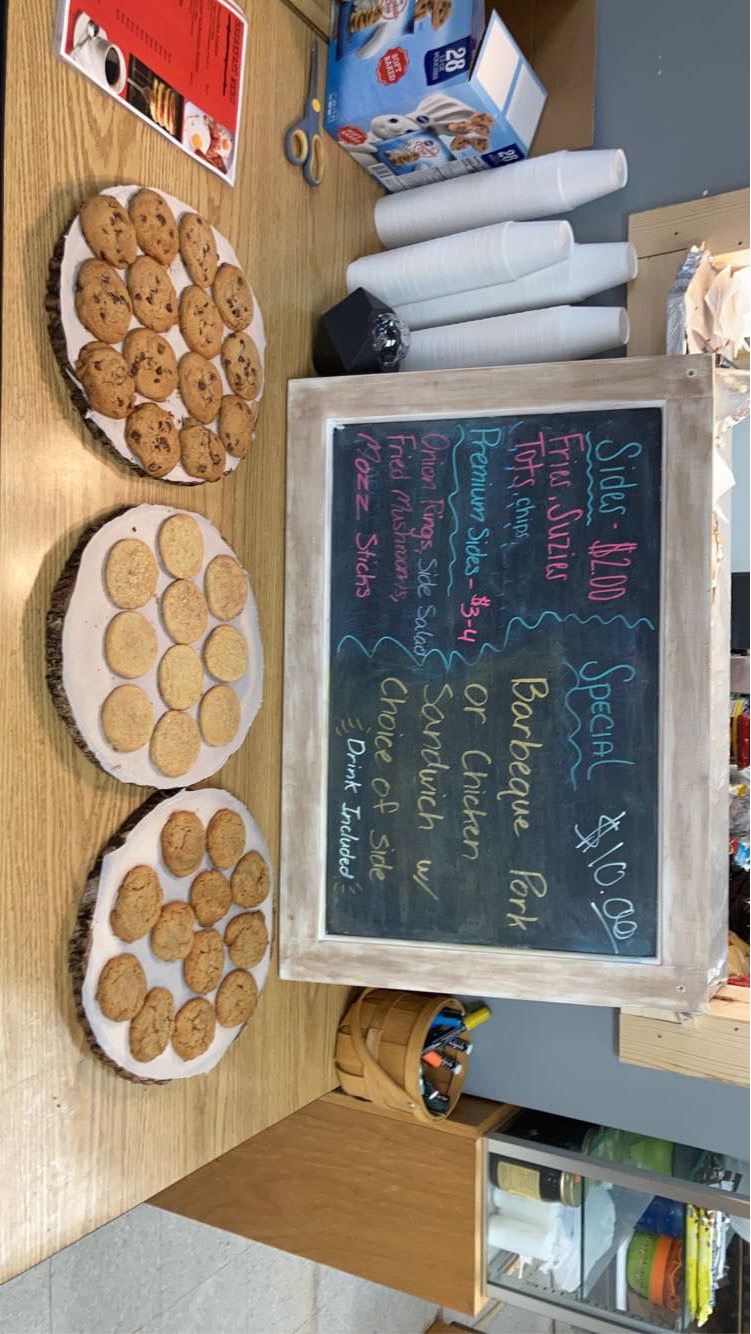 Sides - $2.00
Fries, Suzies
Tots, chips
Premium Sides - $3-4
Onion Rings, Side Salad
Fried Mushrooms,
Mozz Sticks
Special $10.00
Barbeque Pork
or Chicken
Sandwich w/
Choice of side
Drink Included
BREAKFAST MENU
28
SOFT BAKED
28